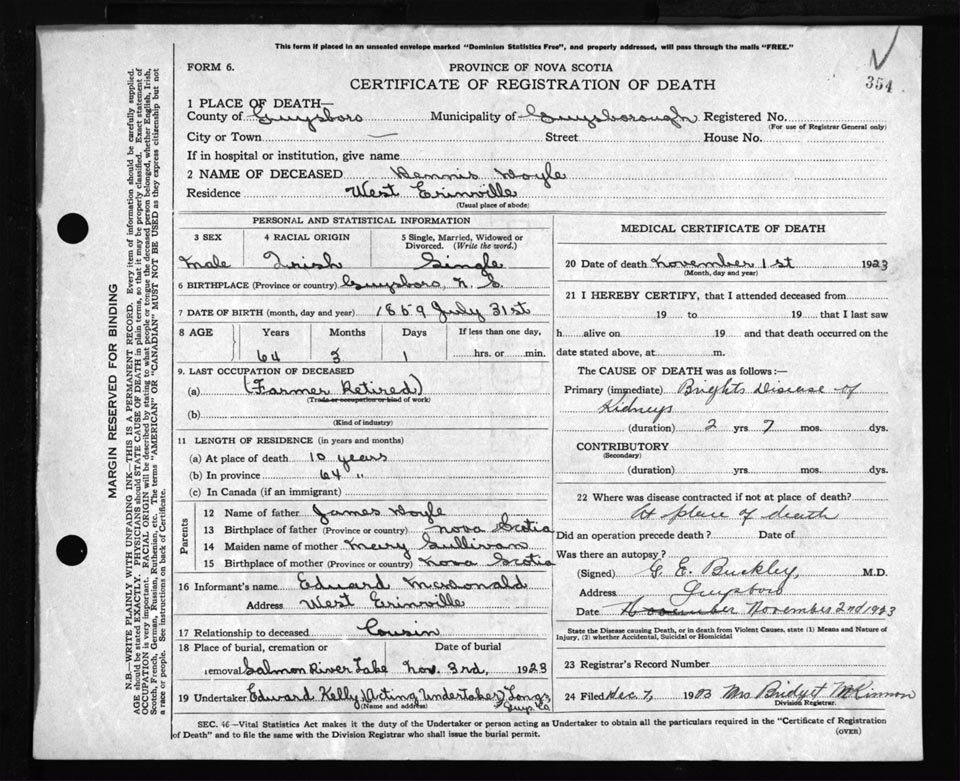 This form if placed in an unsealed envelope marked "Dominion Statistics Free", and properly addressed, will pass through the mails "FREE."
FORM 6.
PROVINCE OF NOVA SCOTIA
CERTIFICATE OF REGISTRATION OF DEATH
354
1 PLACE OF DEATH—
County of Guysboro Municipality of Guysborough Registered No.
(For use of Registrar General only)
City or Town — Street House No.
If in hospital or institution, give name
2 NAME OF DECEASED Dennis Doyle
Residence West Erinville
(Usual place of abode)
PERSONAL AND STATISTICAL INFORMATION
3 SEX 4 RACIAL ORIGIN 5 Single, Married, Widowed or Divorced. (Write the word.)
Male Irish Single
6 BIRTHPLACE (Province or country) Guysboro, N. S.
7 DATE OF BIRTH (month, day and year) 1859 July 31st
8 AGE Years Months Days If less than one day,
64 3 1 hrs. or min.
9. LAST OCCUPATION OF DECEASED
(a) (Farmer Retired)
(Trade or occupation or kind of work)
(b)
(Kind of industry)
11 LENGTH OF RESIDENCE (in years and months)
(a) At place of death 10 years
(b) In province 64 "
(c) In Canada (if an immigrant)
Parents
12 Name of father James Doyle
13 Birthplace of father (Province or country) Nova Scotia
14 Maiden name of mother Mary Sullivan
15 Birthplace of mother (Province or country) Nova Scotia
16 Informant's name Edward McDonald
Address West Erinville
17 Relationship to deceased Cousin
18 Place of burial, cremation or Date of burial
removal Salmon River Lake Nov. 3rd, 1923
19 Undertaker Edward Kelly (Acting Undertaker)
(Name and address) Guys. Co
MEDICAL CERTIFICATE OF DEATH
20 Date of death November 1st 1923
(Month, day and year)
21 I HEREBY CERTIFY, that I attended deceased from
19 to 19 that I last saw
h alive on 19 and that death occurred on the
date stated above, at m.
The CAUSE OF DEATH was as follows:—
Primary (immediate) Brights Disease of
Kidneys
(duration) 2 yrs 7 mos. dys.
CONTRIBUTORY
(Secondary)
(duration) yrs. mos. dys.
22 Where was disease contracted if not at place of death?
At place of death
Did an operation precede death? Date of
Was there an autopsy?
(Signed) G. E. Buckley, M.D.
Address Guysboro
Date November November 2nd 1923
State the Disease causing Death, or in death from Violent Causes, state (1) Means and Nature of Injury, (2) whether Accidental, Suicidal or Homicidal
23 Registrar's Record Number
24 Filed Dec 7, 1923 Mrs Bridget McKinnon
Division Registrar.
SEC. 46—Vital Statistics Act makes it the duty of the Undertaker or person acting as Undertaker to obtain all the particulars required in the "Certificate of Registration
of Death" and to file the same with the Division Registrar who shall issue the burial permit.
(OVER)
MARGIN RESERVED FOR BINDING
N.B.—WRITE PLAINLY WITH UNFADING INK—THIS IS A PERMANENT RECORD. Every item of information should be carefully supplied.
AGE should be stated EXACTLY. PHYSICIANS should STATE CAUSE OF DEATH in plain terms, so that it may be properly classified. Exact statement of
OCCUPATION is very important. RACIAL ORIGIN will be described by stating to what people or tongue the deceased person belonged, whether English, Irish,
Scotch, French, German, Russian, Ruthenian, etc. The terms "AMERICAN" OR "CANADIAN" MUST NOT BE USED as they express citizenship but not
a race or people. See instructions on back of Certificate.